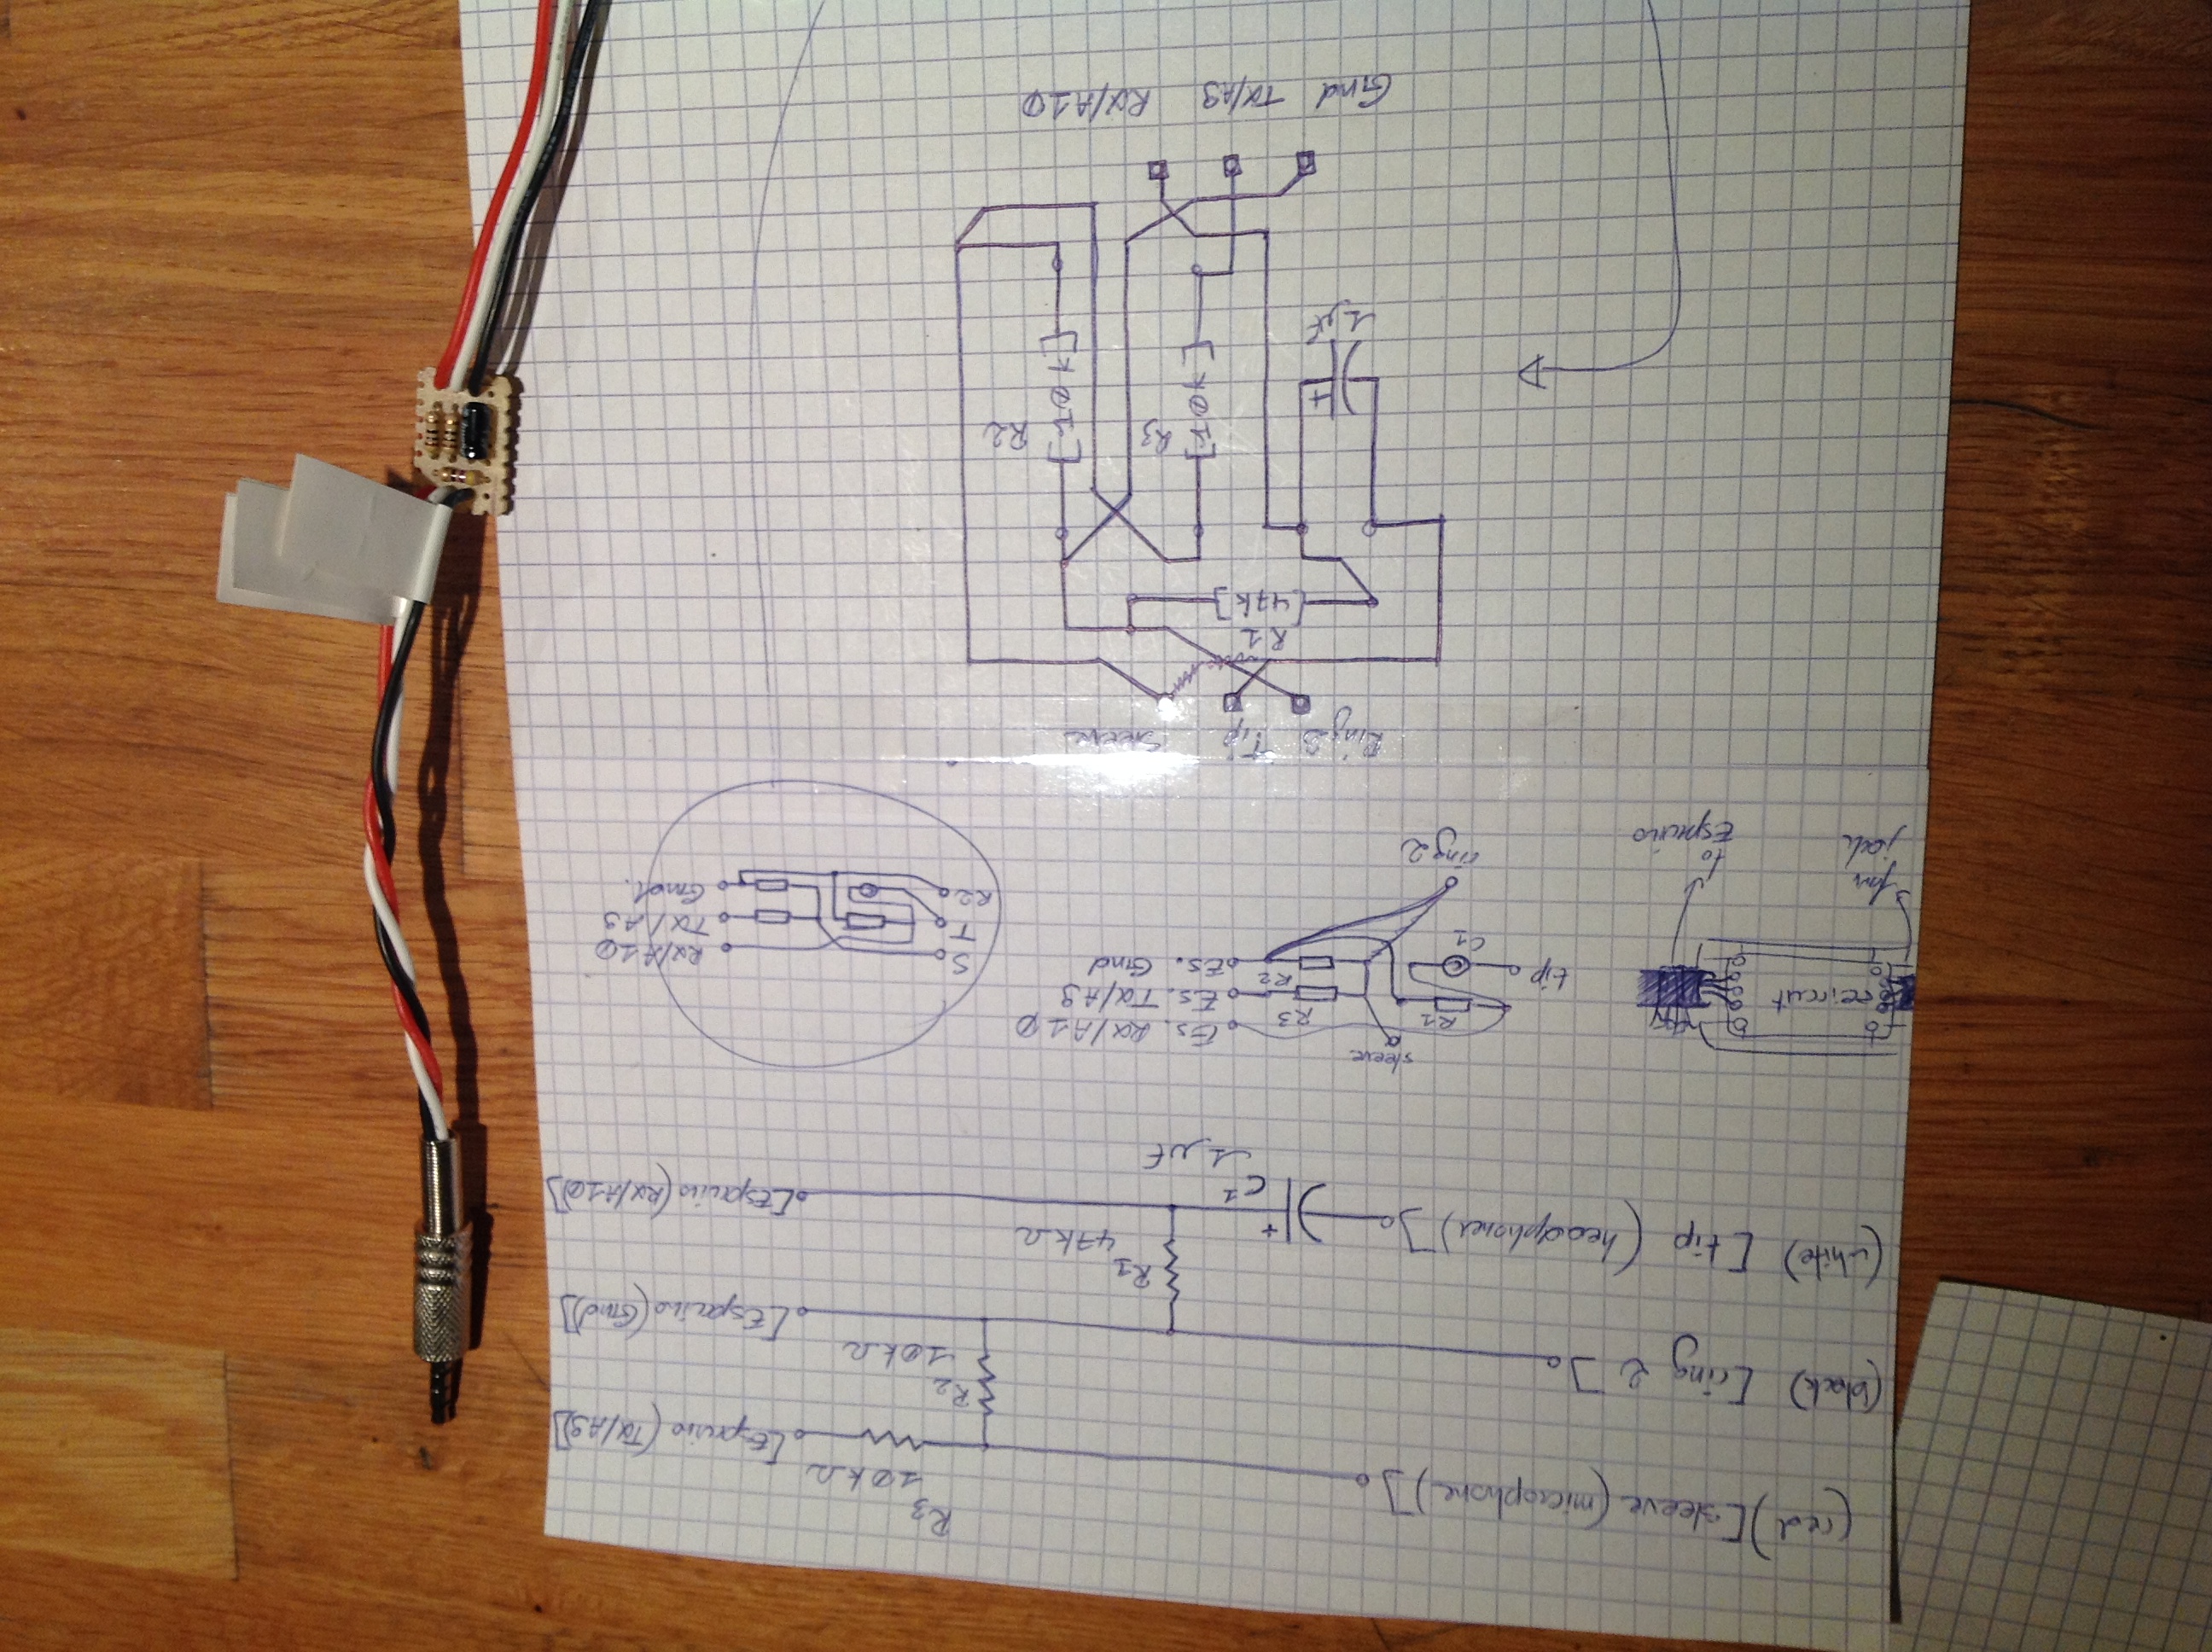 (red) [sleeve (microphone)]
R3
10kΩ
[Espruino (Tx/A9)]
R2
10kΩ
(black) [ring 2]
[Espruino (Gnd)]
R1
47kΩ
(white) [tip (headphones)]
+
C1
1µF
[Espruino (Rx/A10)]
circut
from
jack
to
Espruino
sleeve
R1
R3
R2
tip
C1
ring 2
Es. RX/A10
Es. TX/A9
Es. Gnd
S
T
R2
RX/A10
TX/A9
Gnd.
Ring2 Tip Sleeve
R1
47k
R3
10k
R2
10k
+
1µF
Gnd TX/A9 RX/A10